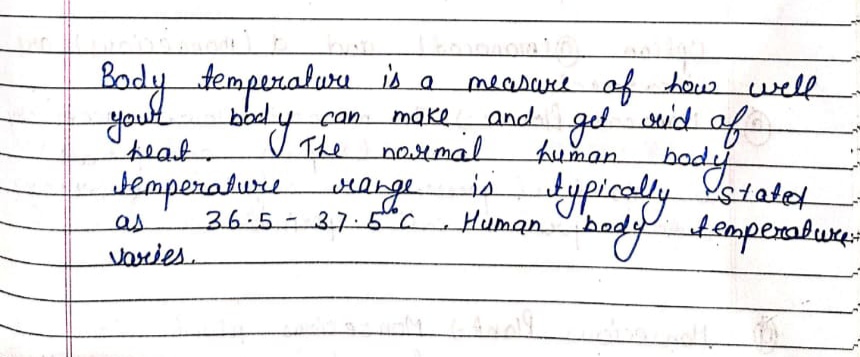 Body temperature is a measure of how well
your body can make and get rid of
heat. The normal human body
temperature range is typically stated
as 36.5 - 37.5°C. Human body temperature
varies.